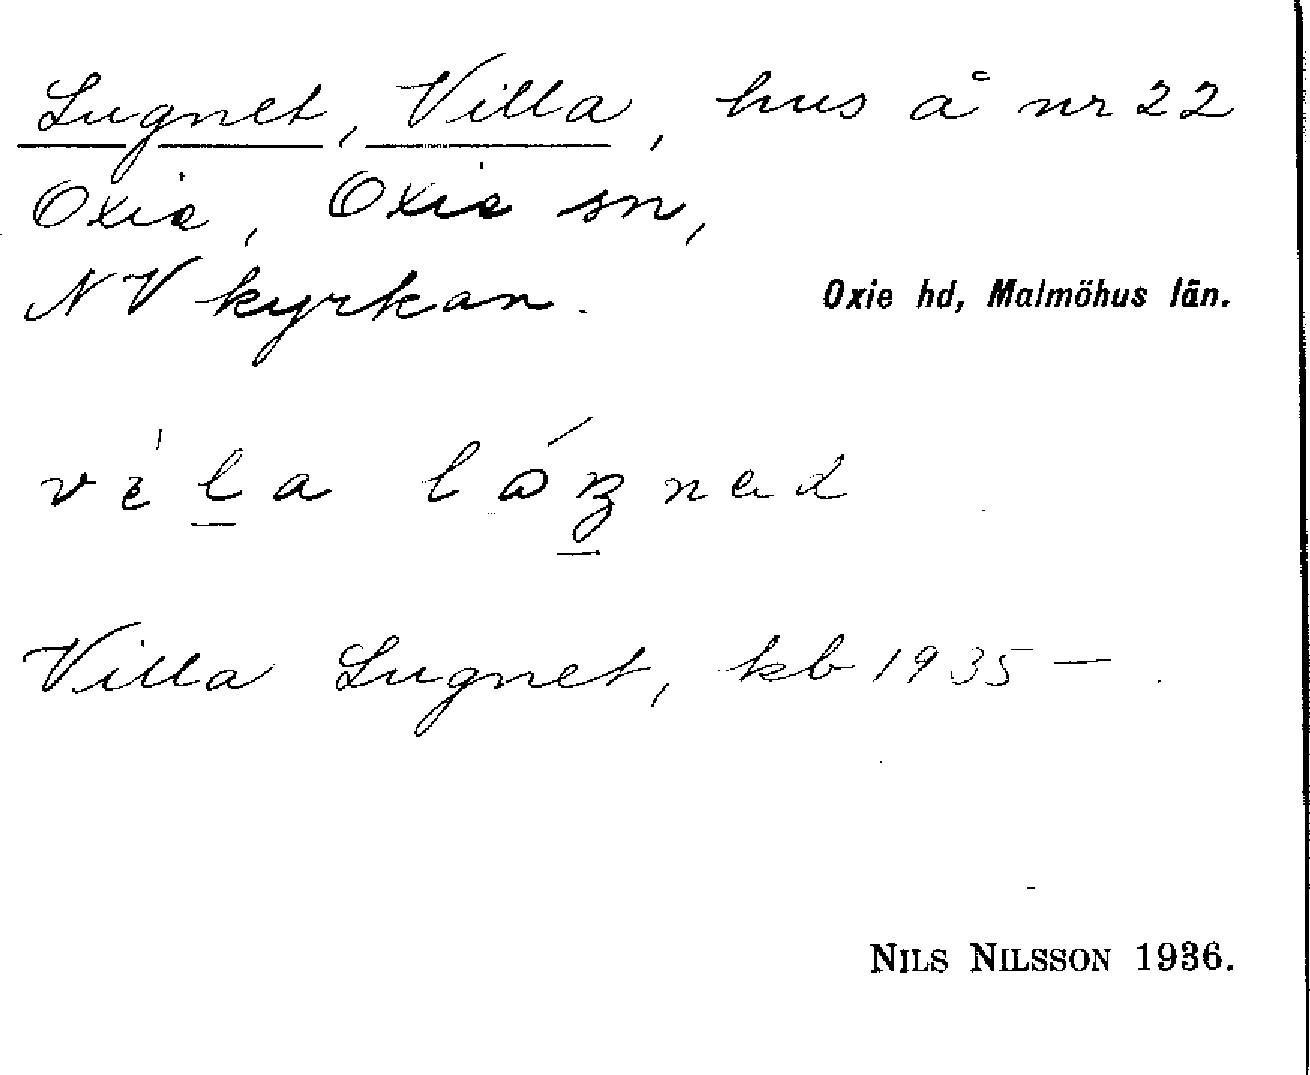 Lugnet, Villa, hus å nr 22
Oxie, Oxie sn,
NV kyrkan.
Oxie hd, Malmöhus län.
Villa Lugnet, kb 1935 —.
NILS NILSSON 1936.